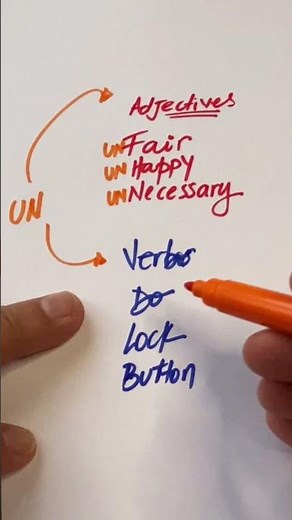 Adjectives
UNFair
UNHappy
UNNecessary
UN
Verbs
Do
Lock
Button